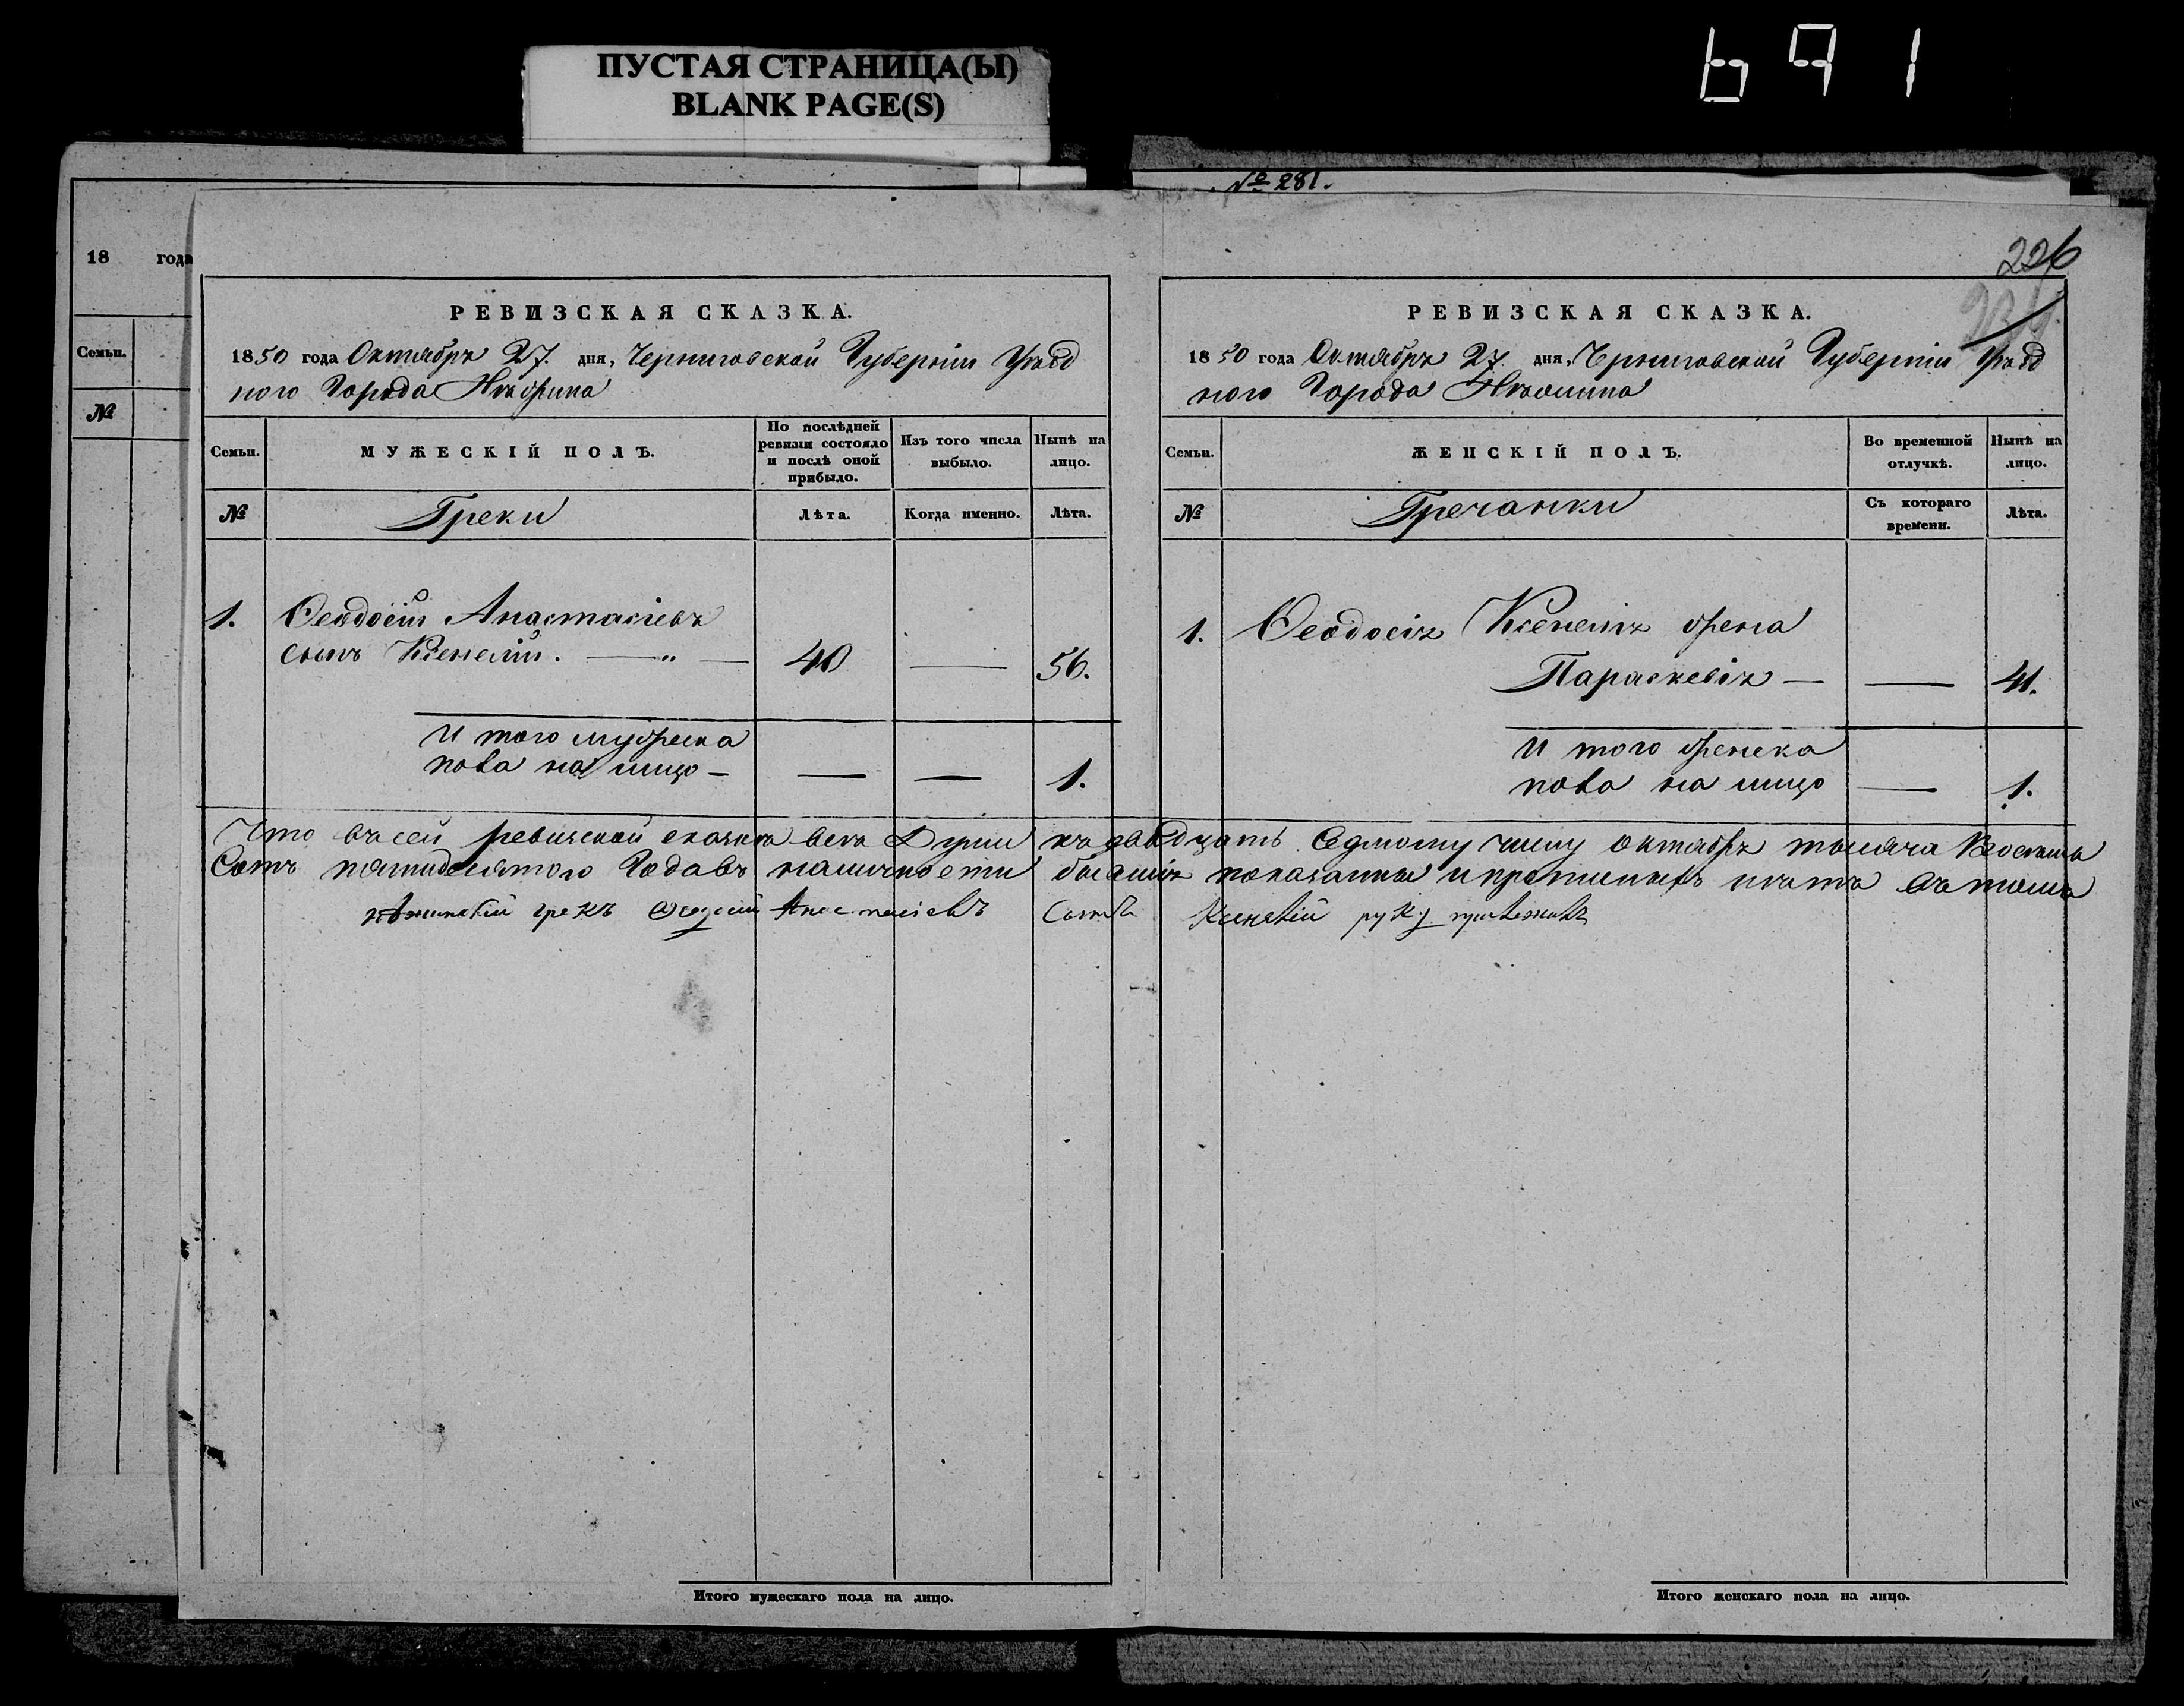 ПУСТАЯ СТРАНИЦА(Ы)
BLANK PAGE(S)
691
№ 281.
226
18 года
Семьи.
№
РЕВИЗСКАЯ СКАЗКА.
1850 года Октября 27. дня, Черниговской Губерніи Уѣзд
ного Города Нѣжина
Семьи.
МУЖЕСКІЙ ПОЛЪ.
По послѣдней ревизіи состояло и послѣ оной прибыло.
Изъ того числа выбыло.
Нынѣ на лицо.
№
Греки
Лѣта.
Когда именно.
Лѣта.
1. Феодосій Анастасіевъ
сынъ Ксенелій. — „ — 40 — 56.
И того мужеска
пола на лицо — — — 1.
РЕВИЗСКАЯ СКАЗКА.
1850 года Октября 27. дня, Черниговской Губерніи Уѣзд
ного Города Нѣжина
Семьи.
ЖЕНСКІЙ ПОЛЪ.
Во временной отлучкѣ.
Нынѣ на лицо.
№
Гречанки
Съ котораго времени.
Лѣта.
1. Феодосія жена
Параскевія — — 41.
И того женска
пола на лицо — 1.
Что въ сей ревизской сказкѣ всѣ Души къ двадцать Седмому числу октября тысяча Восемь
Сотъ пятидесятого Года въ наличности бывшія показанны и прописныхъ нѣтъ въ томъ
нѣжинскій грекъ Феодосій Анастасіевъ Сынъ руку приложилъ
Итого мужескаго пола на лицо.
Итого женскаго пола на лицо.